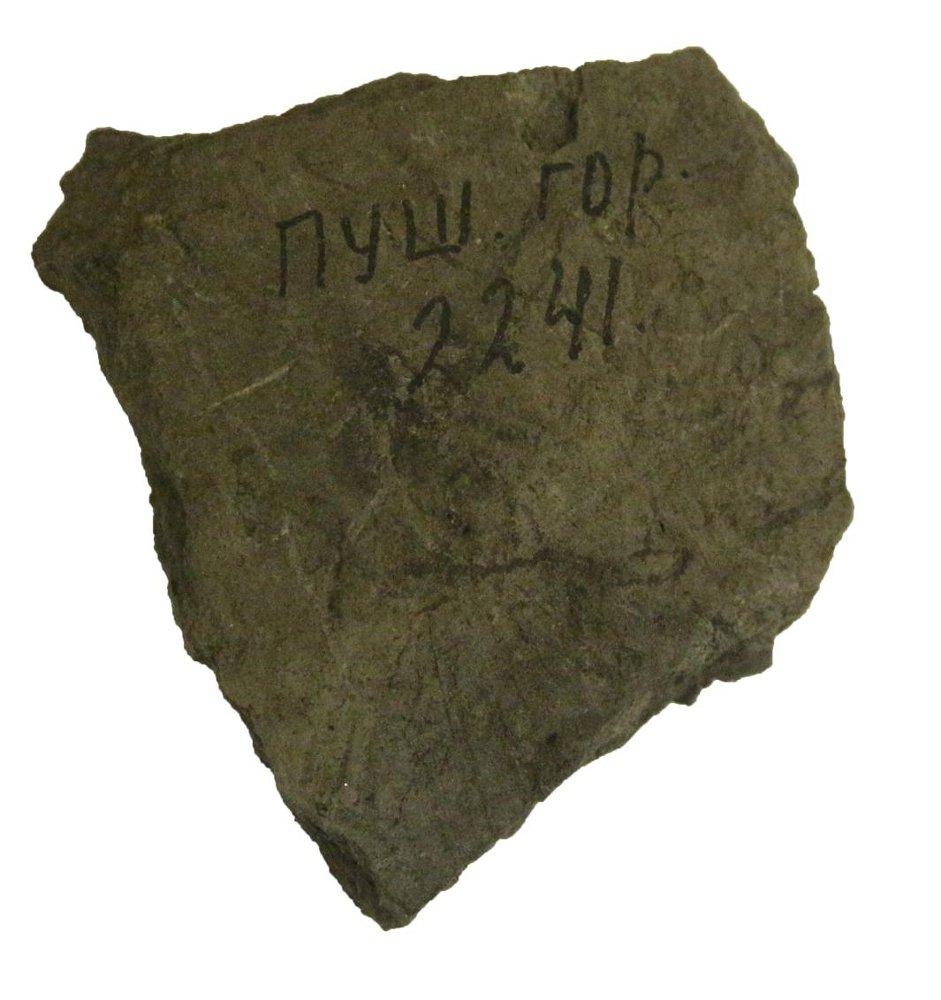 ПУШ. ГОР.
2241.